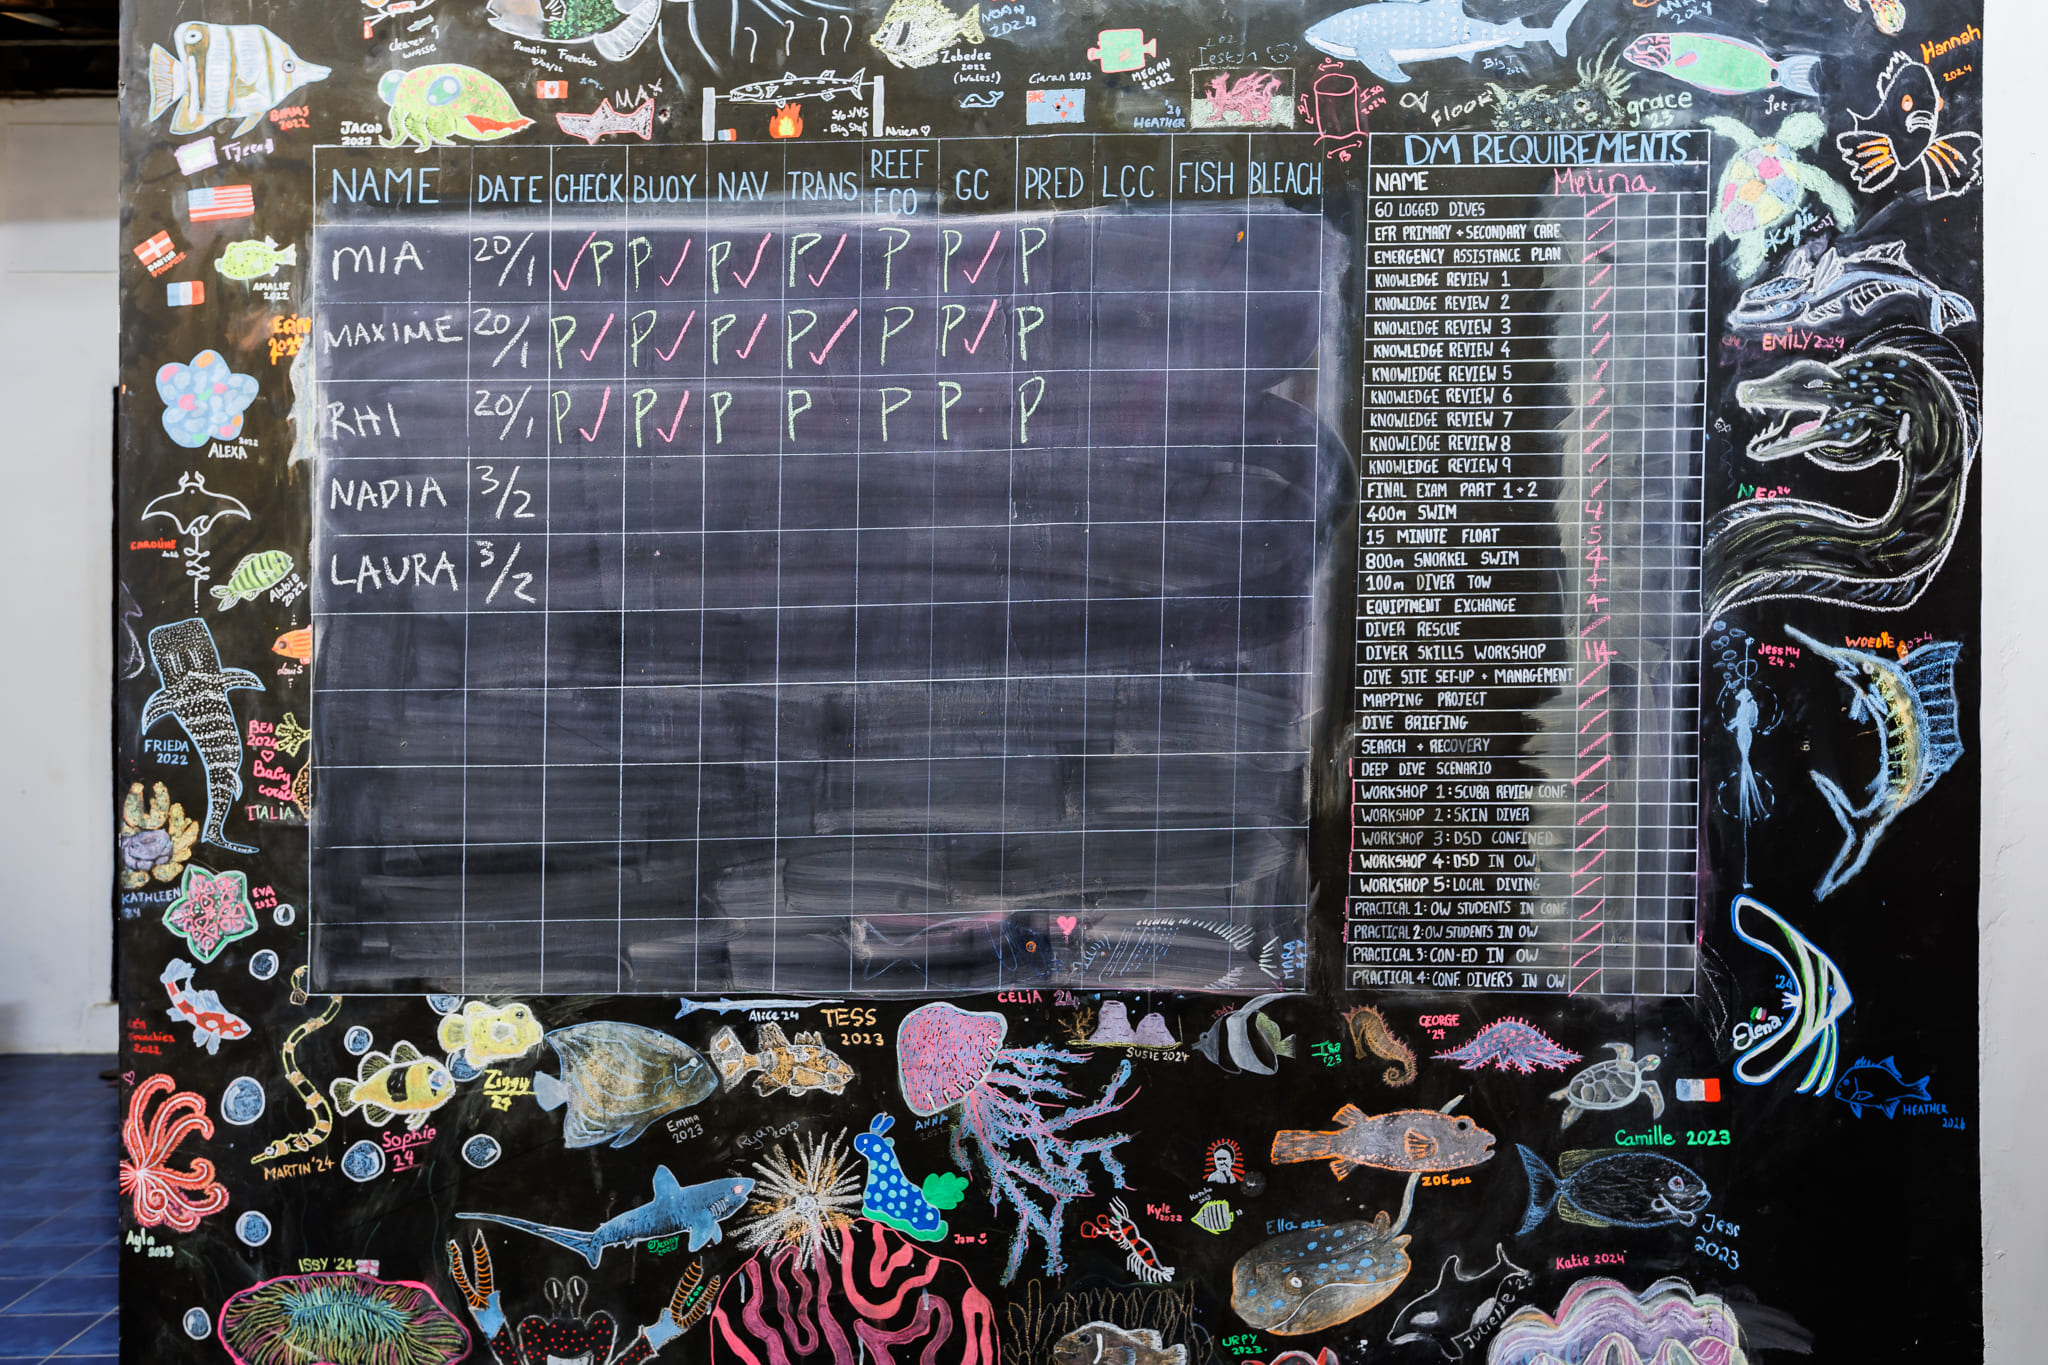 NOAH 2024
ANA 2024
MAX
cleaner wrasse
Romain Frenchies
Zebedee
2022
(Wales!)
BIG T
2024
Hannah
2024
BIMAS
2022
JACOB
2022
MAX
S/O JVS
- Big Stef
Adrien
Ciaran 2023
MEGAN
2022
Iestyn
'24
HEATHER
ISA
2024
FLOOR
grace
'23
Jet
Tjeerd
AMALIE
2022
Erin
2024
ALEXA
2022
CAROLINE
Abbie
2022
Louis
FRIEDA
2022
BEA
2024
Baby coral
ITALIA
KATHLEEN
'24
EVA
2023
Frenchies
2022
Ayla
2023
NAME DATE CHECK BUOY NAV TRANS REEF ECO GC PRED LCC FISH BLEACH
MIA 20/1 ✓P P✓ P✓ P✓ P P✓ P
MAXIME 20/1 P✓ P✓ P✓ P✓ P P✓ P
RHI 20/1 P✓ P✓ P P P P P
NADIA 3/2
LAURA 3/2
MARA
24
DM REQUIREMENTS
NAME Melina
60 LOGGED DIVES
EFR PRIMARY + SECONDARY CARE
EMERGENCY ASSISTANCE PLAN
KNOWLEDGE REVIEW 1
KNOWLEDGE REVIEW 2
KNOWLEDGE REVIEW 3
KNOWLEDGE REVIEW 4
KNOWLEDGE REVIEW 5
KNOWLEDGE REVIEW 6
KNOWLEDGE REVIEW 7
KNOWLEDGE REVIEW 8
KNOWLEDGE REVIEW 9
FINAL EXAM PART 1 + 2
400m SWIM 4
15 MINUTE FLOAT 5
800m SNORKEL SWIM 4
100m DIVER TOW 4
EQUIPTMENT EXCHANGE 4
DIVER RESCUE
DIVER SKILLS WORKSHOP 114
DIVE SITE SET-UP + MANAGEMENT
MAPPING PROJECT
DIVE BRIEFING
SEARCH + RECOVERY
DEEP DIVE SCENARIO
WORKSHOP 1: SCUBA REVIEW CONF.
WORKSHOP 2: SKIN DIVER
WORKSHOP 3: DSD CONFINED
WORKSHOP 4: DSD IN OW
WORKSHOP 5: LOCAL DIVING
PRACTICAL 1: OW STUDENTS IN CONF.
PRACTICAL 2: OW STUDENTS IN OW
PRACTICAL 3: CON-ED IN OW
PRACTICAL 4: CONF. DIVERS IN OW
EMILY 2024
NEO 24
WOEDIE 2024
Jess MY
24
'24
Elena
HEATHER
2024
CELIA 24
Alice '24
TESS
2023
SUSIE 2024
Isa
'23
GEORGE
'24
MARTIN '24
Sophie
24
Ziggy
24
Emma
2023
Ryan 2023
ANNA
Camille 2023
ZOE 2022
Kyle
2022
Katie 2024
Jess
2023
Ella 2022
Jenny
Jam
ISSY '24
Juliette '2
URPY
2023